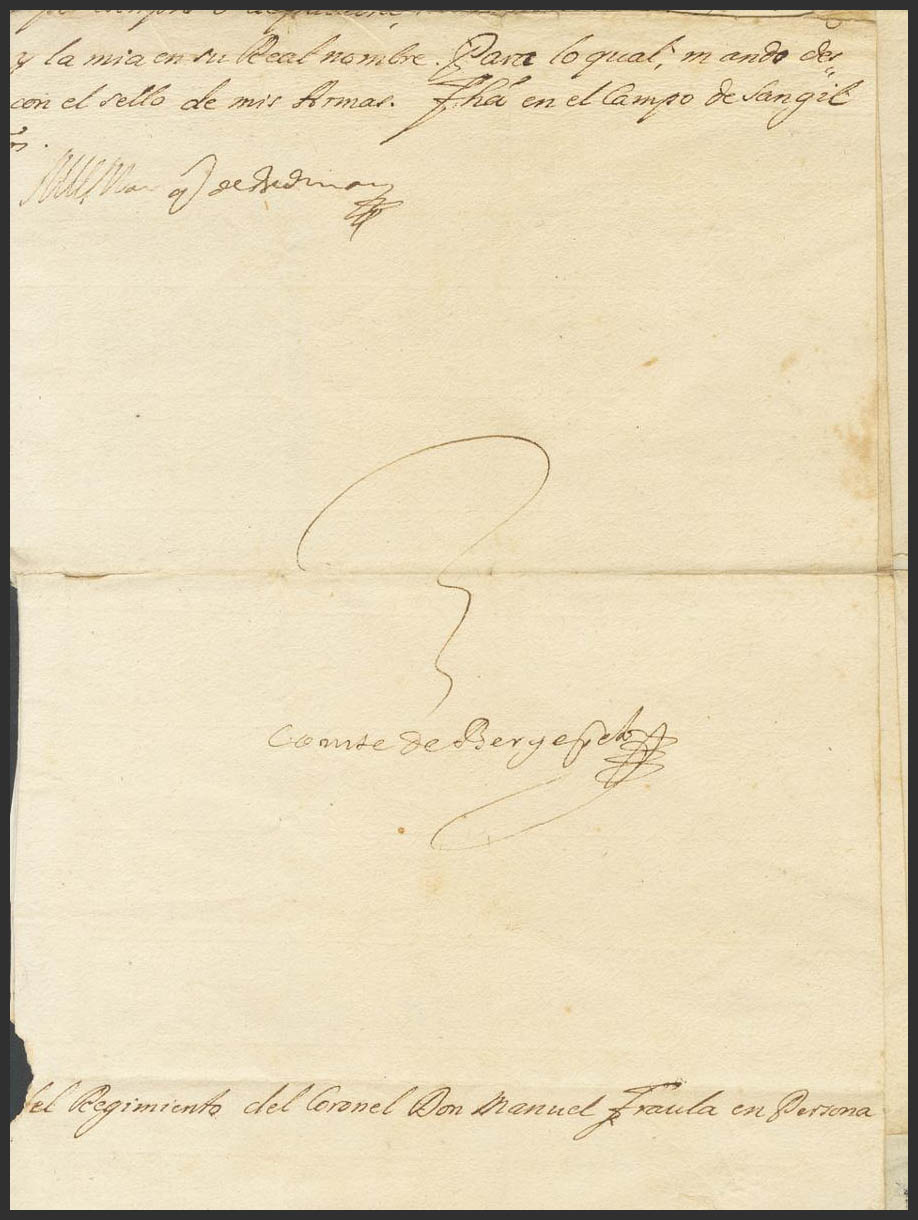 y la mia en su Real nombre. Para lo qual, mando des=
con el sello de mis Armas. Fhâ en el Campo de Sangil
os.
El Marq de Bedmar
Comte de Bergeyck
del Regimiento del Coronel Don Manuel Fraula en Persona